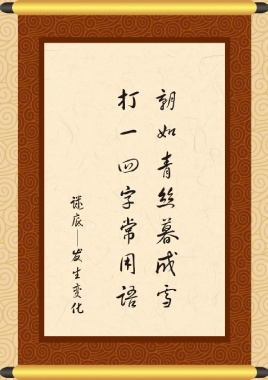 朝如青丝暮成雪
打一四字常用语
谜底—发生变化